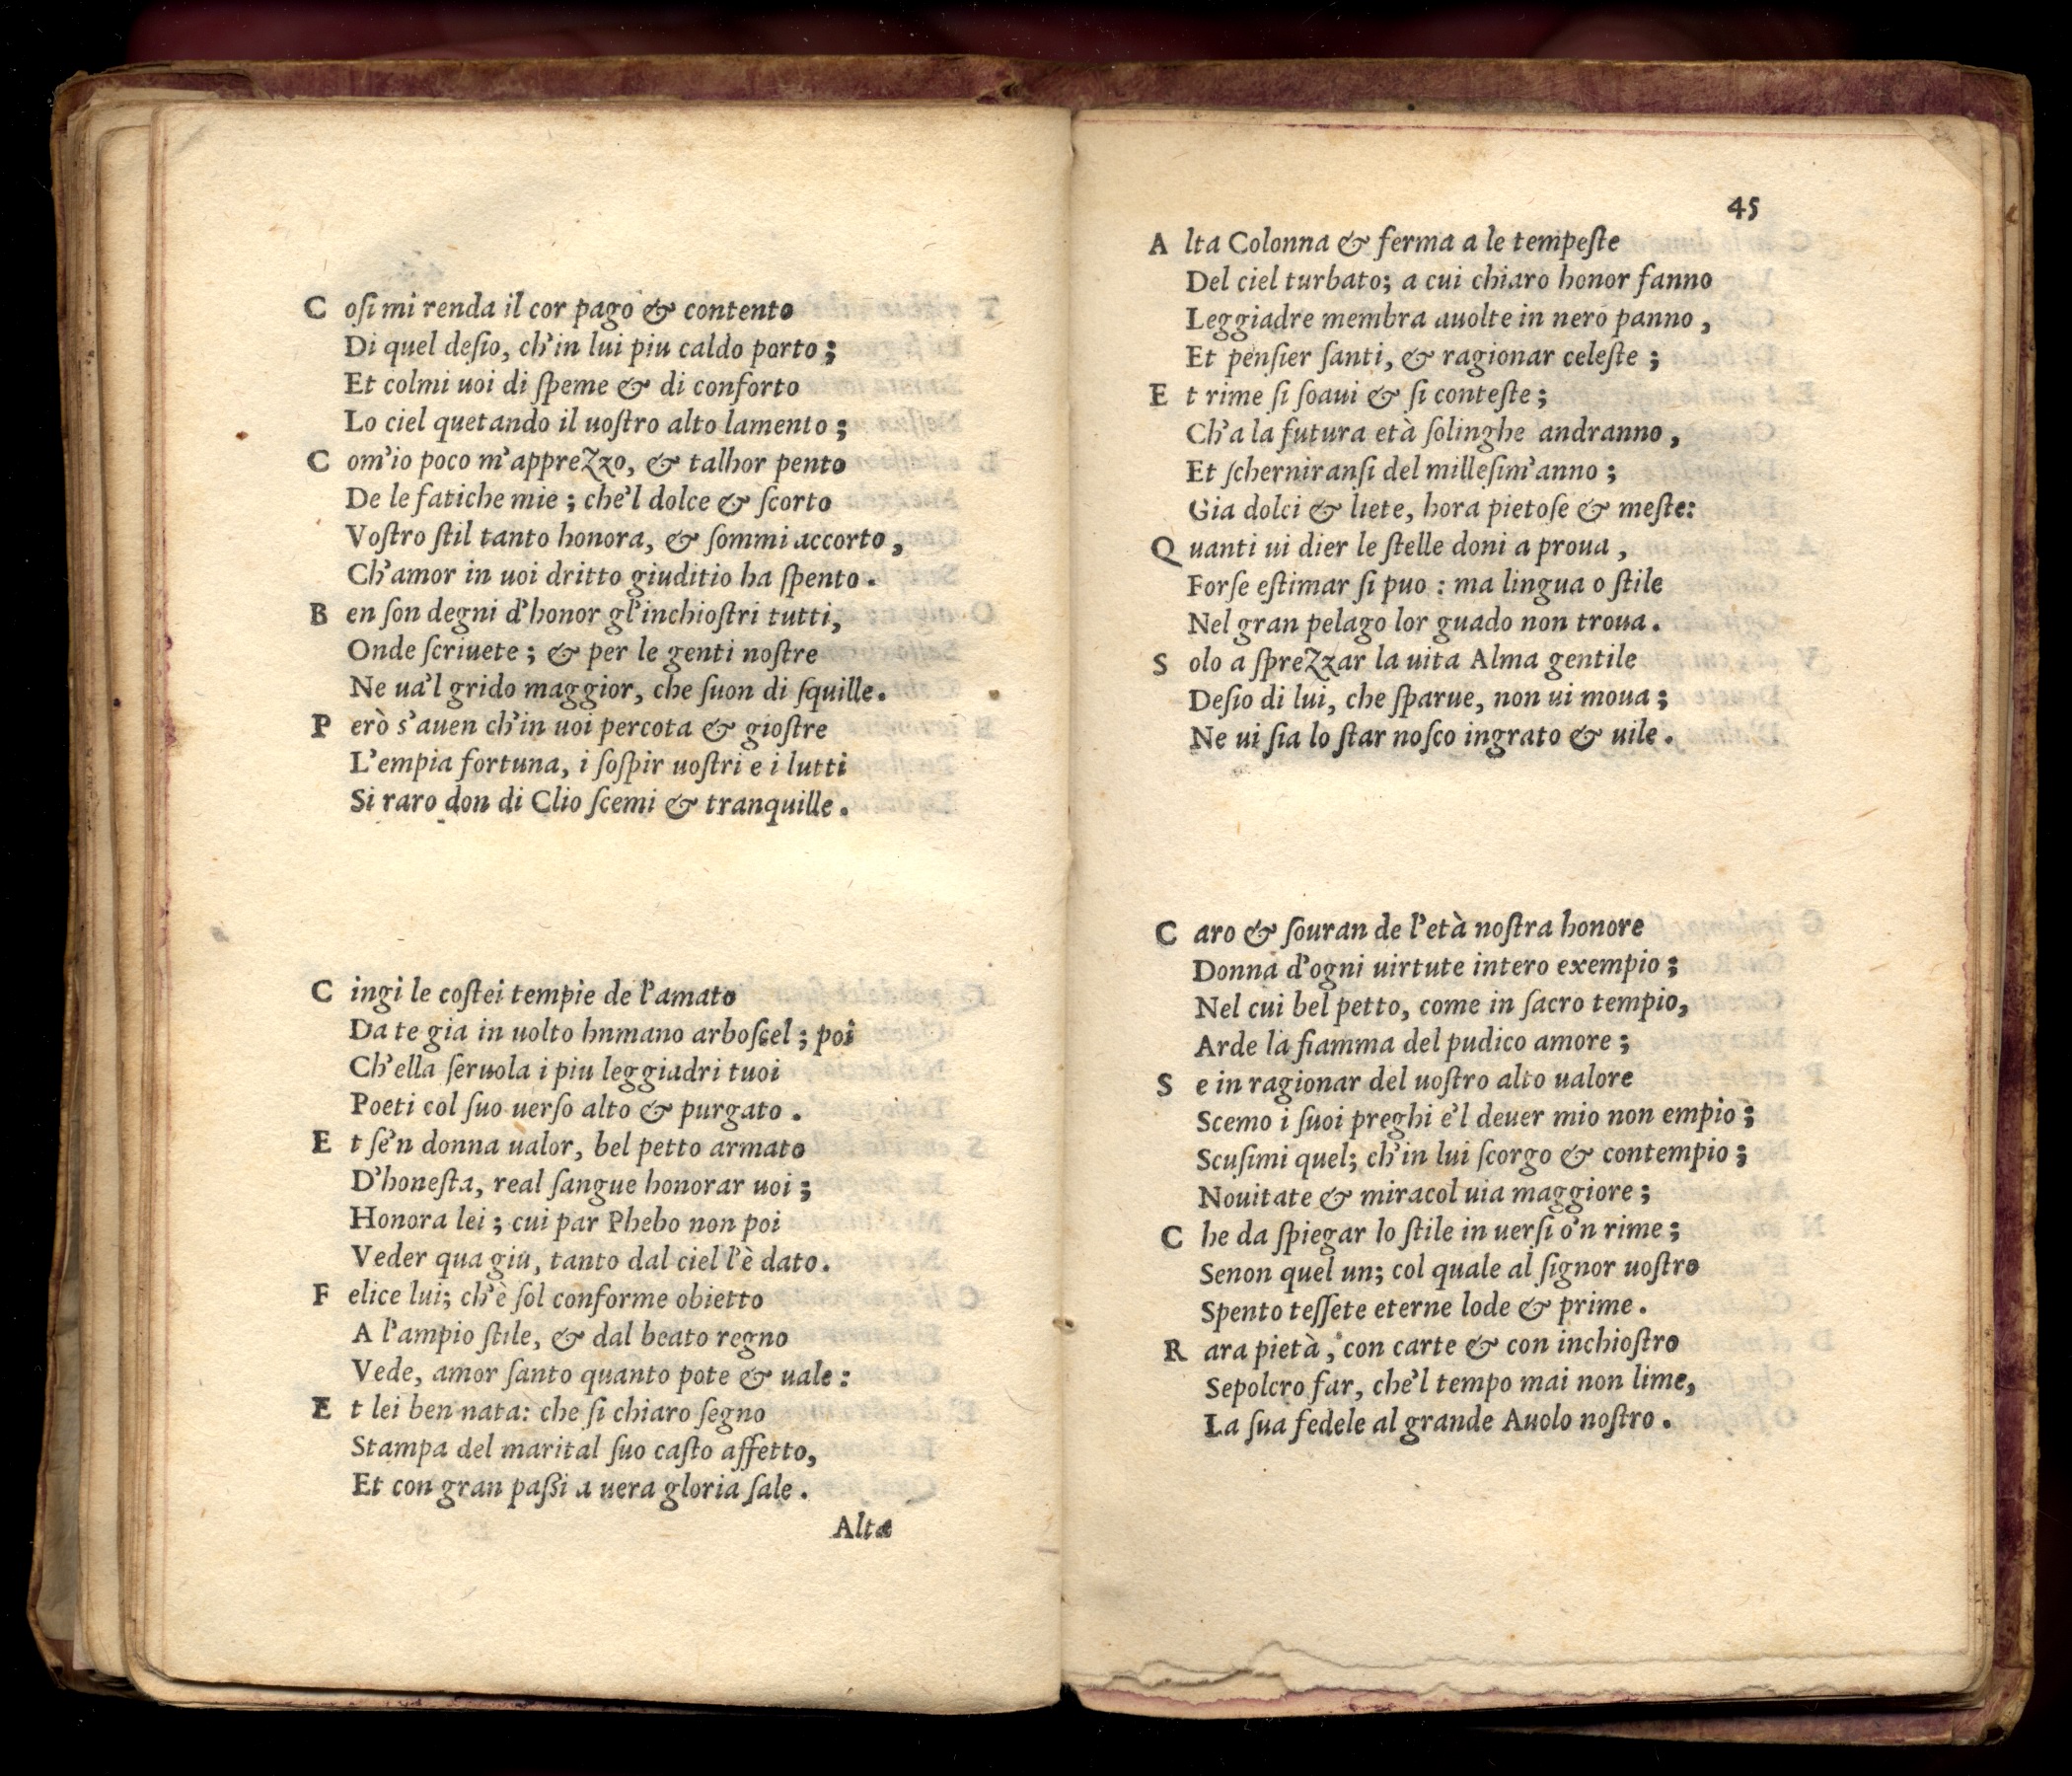 C osi mi renda il cor pago & contento
Di quel desio, ch'in lui piu caldo porto;
Et colmi uoi di speme & di conforto
Lo ciel quetando il uostro alto lamento;
C om'io poco m'apprezzo, & talhor pento
De le fatiche mie; che'l dolce & scorto
Vostro stil tanto honora, & sommi accorto,
Ch'amor in uoi dritto giuditio ha spento.
B en son degni d'honor gl'inchiostri tutti,
Onde scriuete; & per le genti nostre
Ne ua'l grido maggior, che suon di squille.
P erò s'auen ch'in uoi percota & giostre
L'empia fortuna, i sospir uostri e i lutti
Si raro don di Clio scemi & tranquille.
C ingi le costei tempie de l'amato
Da te gia in uolto hnmano arboscel; poi
Ch'ella seruola i piu leggiadri tuoi
Poeti col suo uerso alto & purgato.
E t se'n donna ualor, bel petto armato
D'honesta, real sangue honorar uoi;
Honora lei; cui par Phebo non poi
Veder qua giu, tanto dal ciel l'è dato.
F elice lui; ch'è sol conforme obietto
A l'ampio stile, & dal beato regno
Vede, amor santo quanto pote & uale:
E t lei ben nata: che si chiaro segno
Stampa del marital suo casto affetto,
Et con gran passi a uera gloria sale.
Alta
45
A lta Colonna & ferma a le tempeste
Del ciel turbato; a cui chiaro honor fanno
Leggiadre membra auolte in nero panno,
Et pensier santi, & ragionar celeste;
E t rime si soaui & si conteste;
Ch'a la futura età solinghe andranno,
Et scherniransi del millesim'anno;
Gia dolci & liete, hora pietose & meste:
Q uanti ui dier le stelle doni a proua,
Forse estimar si puo: ma lingua o stile
Nel gran pelago lor guado non troua.
S olo a sprezzar la uita Alma gentile
Desio di lui, che sparue, non ui moua;
Ne ui sia lo star nosco ingrato & uile.
C aro & souran de l'età nostra honore
Donna d'ogni uirtute intero exempio;
Nel cui bel petto, come in sacro tempio,
Arde la fiamma del pudico amore;
S e in ragionar del uostro alto ualore
Scemo i suoi preghi e'l deuer mio non empio;
Scusimi quel; ch'in lui scorgo & contempio;
Nouitate & miracol uia maggiore;
C he da spiegar lo stile in uersi o'n rime;
Senon quel un; col quale al signor uostro
Spento tessete eterne lode & prime.
R ara pietà, con carte & con inchiostro
Sepolcro far, che'l tempo mai non lime,
La sua fedele al grande Auolo nostro.